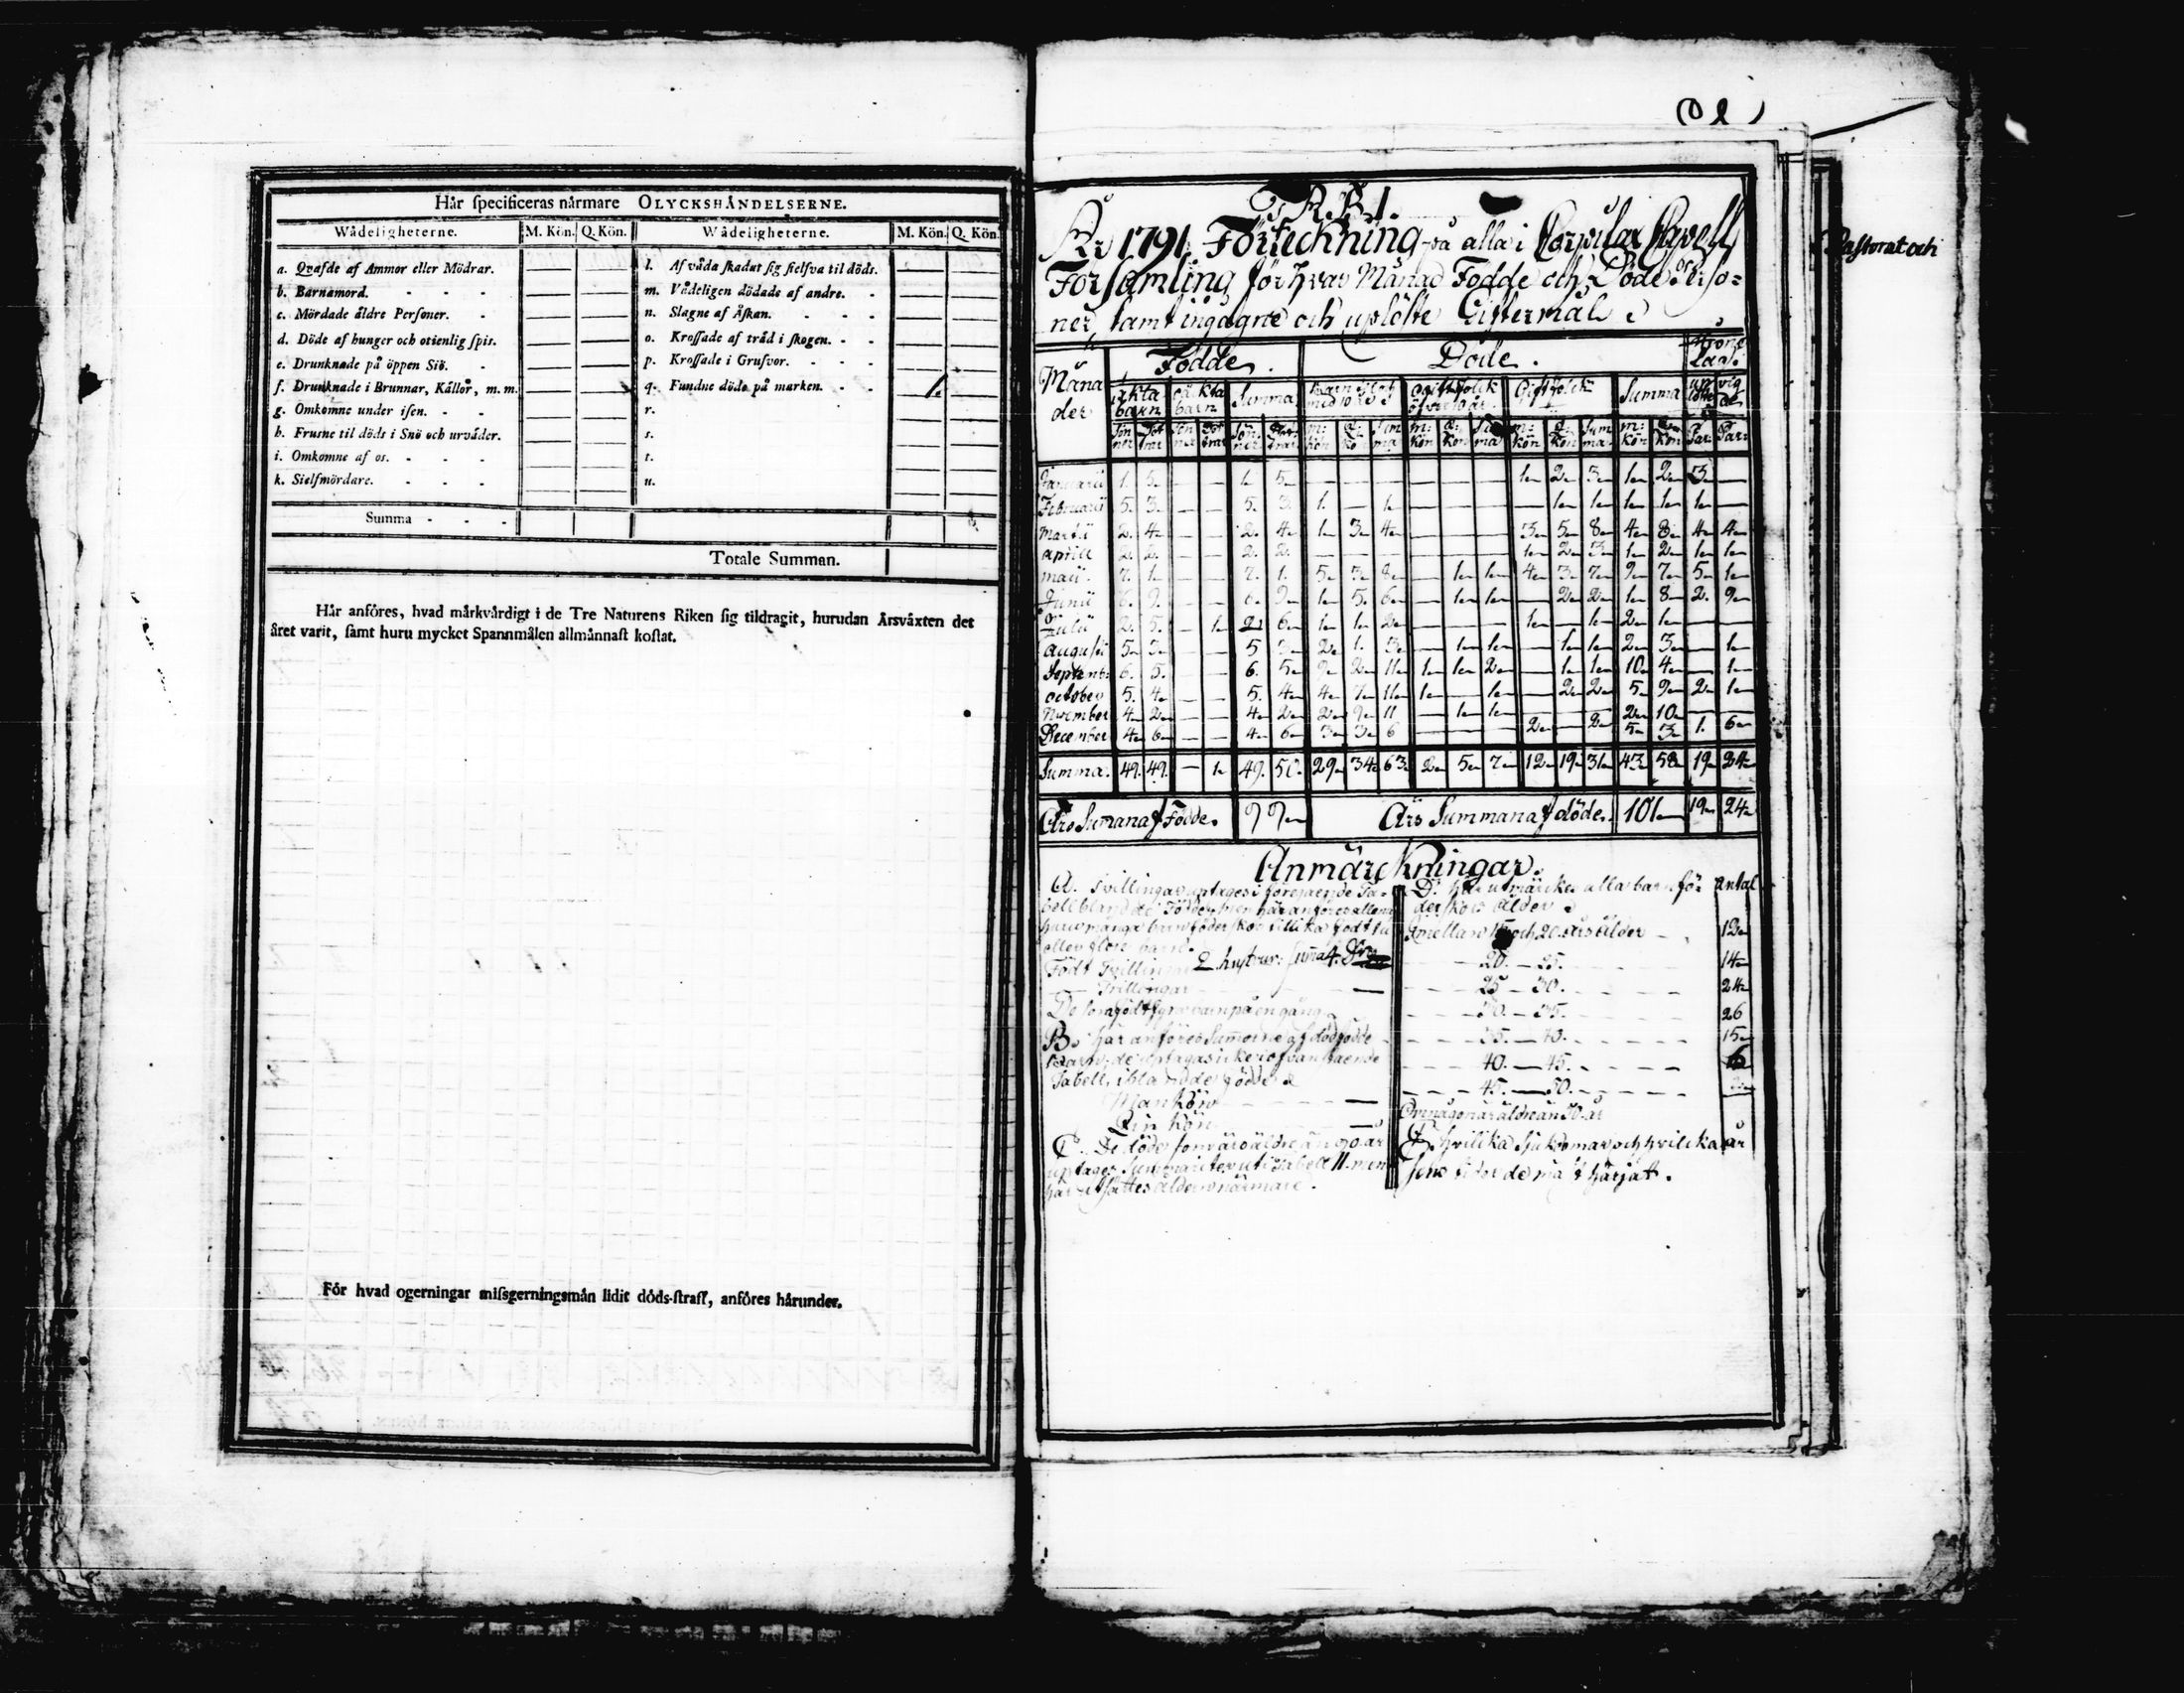 Hår ſpecificeras nårmare OLYCKSHÅNDELSERNE.
Wådeligheterne. M. Kön. Q. Kön. Wådeligheterne. M. Kön. Q. Kön.
a. Qvafde af Ammor eller Mödrar. — — l. Af våda ſkadat ſig ſielfva til döds. — —
b. Barnamord. - - - — — m. Vådeligen dödade af andre. - — —
c. Mördade åldre Perſoner. - — — n. Slagne af Åſkan. - - - — —
d. Döde af hunger och otienlig ſpis. — — o. Kroſſade af tråd i ſkogen. - - — —
e. Drunknade på öppen Siö. - — — p. Kroſſade i Grufvor. - - - — —
f. Drunknade i Brunnar, Källor, m. m. — — q. Fundne döde på marken. - - 1. —
g. Omkomne under iſen. - - — — r. — —
h. Fruſne til döds i Snö och urvåder. — — s. — —
i. Omkomne af os. - - - — — t. — —
k. Sielfmördare. - - - — — u. — —
Summa - - -
Totale Summan.
Hår anföres, hvad mårkvårdigt i de Tre Naturens Riken ſig tildragit, hurudan Årsvåxten det
året varit, ſamt huru mycket Spannmålen allmånnaſt koſtat.
För hvad ogerningar miſsgerningsmån lidit döds-ſtraff, anföres hårunder.
År 1791 Förteckning på alla i Corpilax Capell
Pastorat och
Församling för hvar Månad Födde och Döde Perso=
ner, samt ingågne och uplöste Giftermål
Födde. Döde.
Måna
der
äkta barn oäkta barn Summa Ogift folck öfver 10 år. Gift folck Summa
Januarii 1. 5. — — 1. 5. — — — — — — 1 2 3 1 2 3 —
Februarii 5. 3. — — 5. 3. 1. — 1 — — — — 1 1 1 1 1 —
Martii 2. 4 — — 2. 4 1 3 4 — — — 3 5 8 4 8 4 4
Aprill 2. 2. — — 2. 2. — — — — — — 1 2 3 1 2 1 1
Maii. 7. 1 — — 7. 1. 5 3 8 — 1 1 4 3 7 9 7 5 1
Junii 6. 9. — — 6. 9 1 5. 6 — 1 1 — 2 2 1 8 2. 9
Julii 2. 5. — 1 2 6 1 1 2 — — — 1 — 1 2 1 — —
Augusti 5 3 — — 5 3 2 1. 3 — 1 1 — 1 1 2 3 — 1
Septemb: 6. 5. — — 6. 5 9 2 11 1 1 2 — 1 1 10 4 — 1
October 5. 4 — — 5. 4 4 7 11 1 — 1 — 2 2 5 9 2 1
November 4 2 — — 4 2 2 9 11 — 1 1 — — — 2 10 — —
December 4 6 — — 4 6 3 3 6 — — — 2 — 2 5 3 1. 6
Summa. 49. 49. — 1 49. 50. 29 34 63 2 5 7 12 19 31 43 58 19 24
Års Summan af Födde. 99 Års Summan af döde. 101 19 24
Anmärckningar.
A. Tvillingar uptages i föregående Ta=
bell bland de Födde, men här anföres allena
huru många barnsföderskor tillika födt två
eller flere barn.
Födt Tvillingar 2 hustrur: Summa 4.
— Trillingar —
De som födt fyra barn på en gång
B. Här anföres Summorne af dödfödde
Barn; de uptagas icke i ofvanstående
Tabell, ibland de födde
Mankön —
Qvinkön —
C. De döde som varo äldre än 90 år
uptages Summariter uti Tabell II. men
här utsättes åldern närmare.
D. Här utmärckes alla barnsfö= antal
derskors ålder
Emellan 15 och 20. års ålder 12
20. — 25. 14
25 — 30. 24
30. — 35. 26
35. — 40. 15
40. — 45. 6
45. — 50. 2
Om någon är äldre än 50. år
E. Hvilcka Siukdomar och hvilcka år
sens tider de mäst härjat.